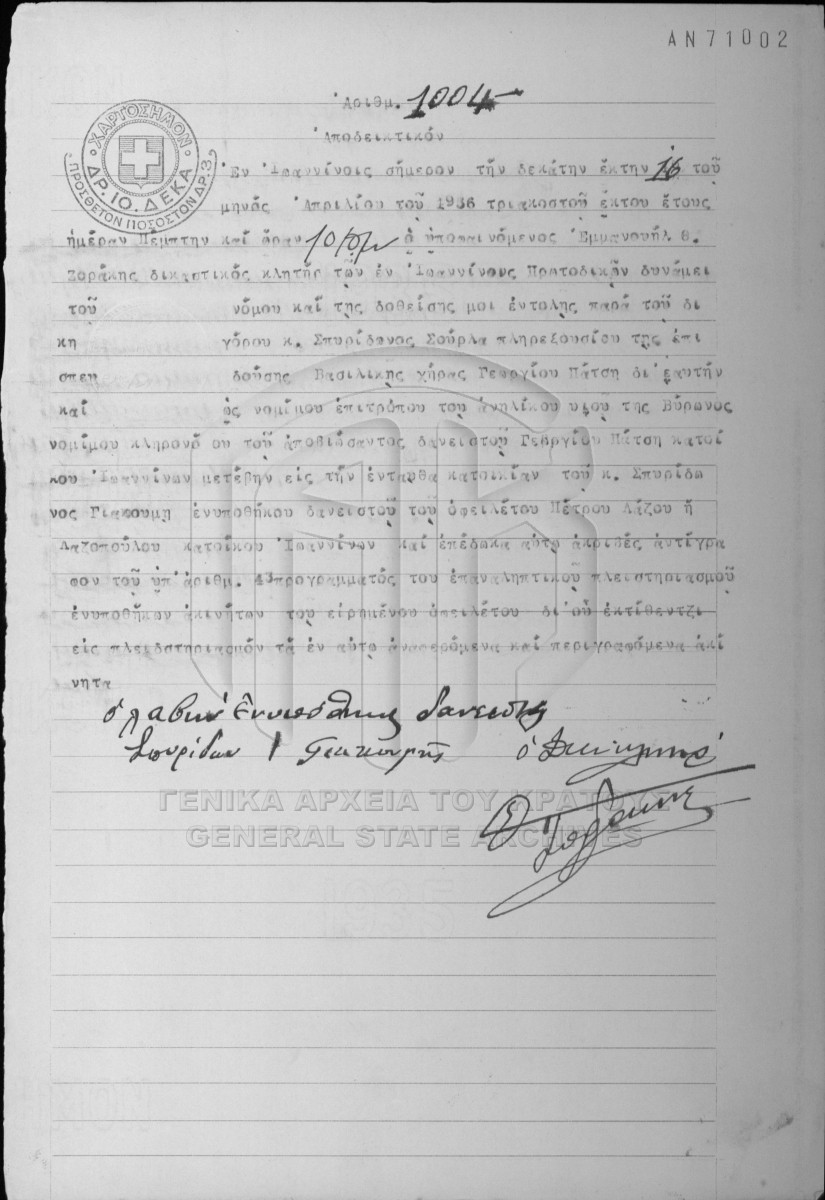 ΑΝ71002
Ἀριθμ. 1004
Ἀποδεικτικόν
ΧΑΡΤΟΣΗΜΟΝ
ΔΡ. 10. ΔΕΚΑ
ΠΡΟΣΘΕΤΟΝ ΠΟΣΟΣΤΟΝ ΔΡ. 3.
Ἐν Ἰωαννίνοις σήμερον τήν δεκάτην ἕκτην 16 τοῦ
μηνός Ἀπριλίου τοῦ 1936 τριακοστοῦ ἕκτου ἔτους
ἡμέραν Πέμπτην καί ὥραν 10 πμ ὁ ὑποφαινόμενος Ἐμμανουήλ Θ.
Ζοράκης δικαστικός κλητήρ τῶν ἐν Ἰωαννίνους Πρωτοδικῶν δυνάμει
τοῦ νόμου καί της δοθείσης μοι ἐντολης παρά τοῦ δι
κη γόρου κ. Σπυρίδωνος Σούρλα πληρεξουσίου της ἐπι
σπευ δούσης Βασιλικῆς χήρας Γεωργίου Πάτση δι'ἑαυτήν
καί ὡς νομίμου ἐπιτρόπου του ἀνηλίκου υἱοῦ της Βύρωνος
νομίμου κληρονό ου τοῦ ἀποβιώσαντος δανειστοῦ Γεωργίου Πάτση κατοί
κου Ἰωαννίνων μετέβην εἰς τήν ἐνταυθα κατοικίαν τοῦ κ. Σπυρίδω
νος Γιακουμη ἐνυποθήκου δανειστοῦ τοῦ ὀφειλέτου Πέτρου Λάζου ἤ
Λαζοπούλου κατοίκου Ἰωαννίνων καί ἐπέδωκα αὐτῳ ἀκριβές ἀντίγρα
φον τοῦ ὑπ'ἀριθμ. 43 προγραμματός του ἐπαναληπτικοῦ πλειστηριασμοῦ
ἐνυποθήκων ἀκινήτων του εἰρημένου ὀφειλέτου δι'οὗ ἐκτίθενται
εἰς πλειδστηριασμόν τά ἐν αὐτῳ ἀναφερόμενα καί περιγραφόμενα ἀκί
νητα
ὁ λαβών Ενυπόθηκος δανειστής
Σπυρίδων Ι Γιακουμής ὁ Δικ. κλητήρ
Ε Θ Ζοράκης
ΓΕΝΙΚΑ ΑΡΧΕΙΑ ΤΟΥ ΚΡΑΤΟΥΣ
GENERAL STATE ARCHIVES